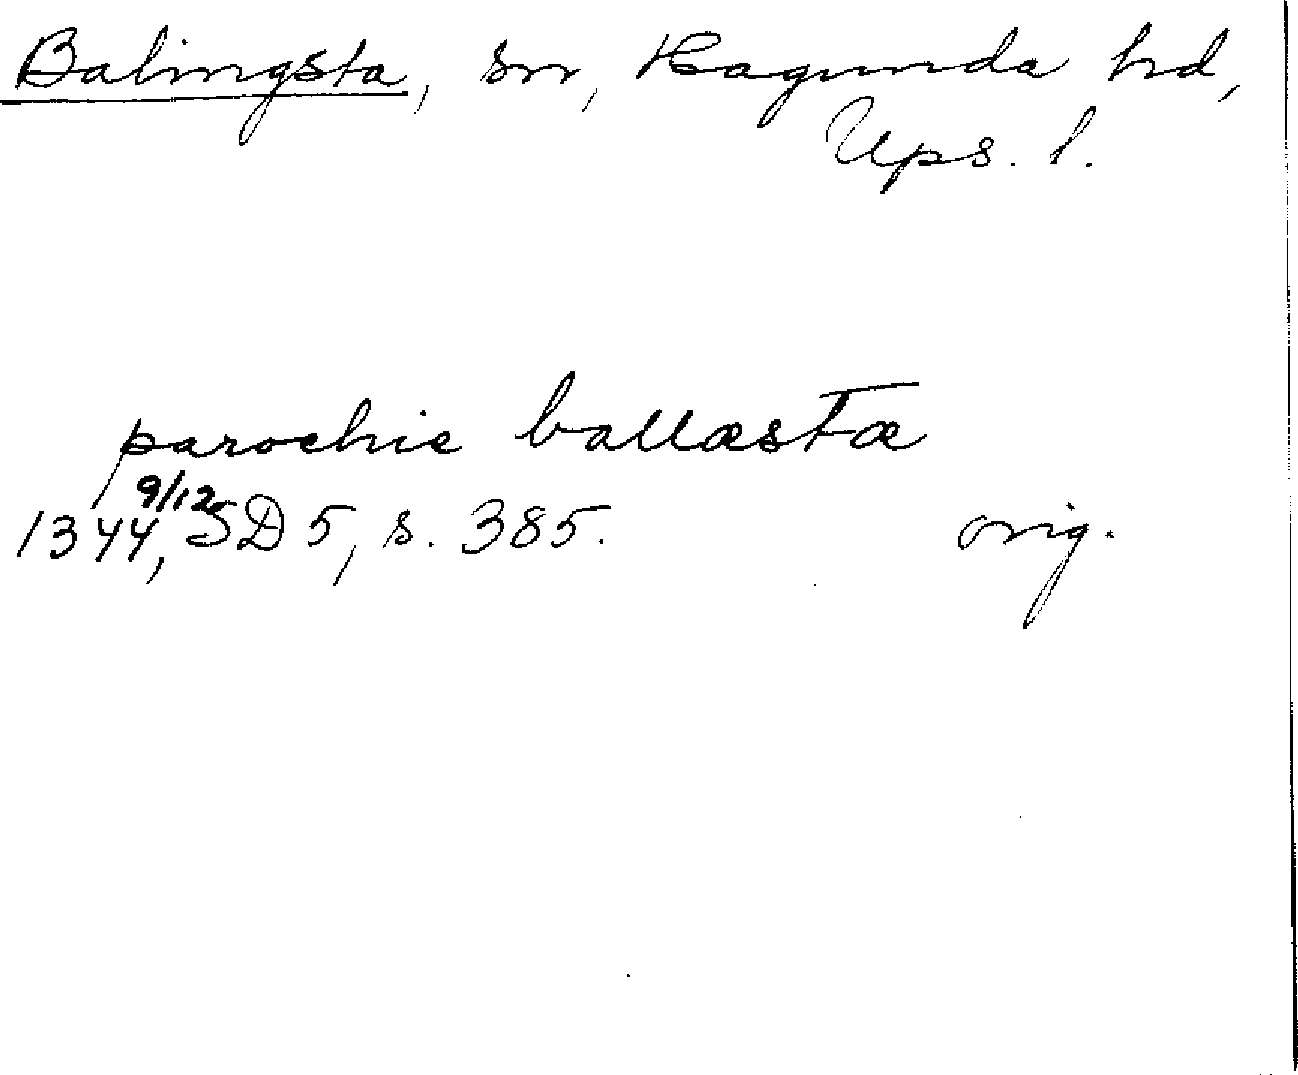 Balingsta, sn, Hagunda hd,
Ups. l.
parochie ballæstæ
1344 9/12, SD 5, s. 385. orig.